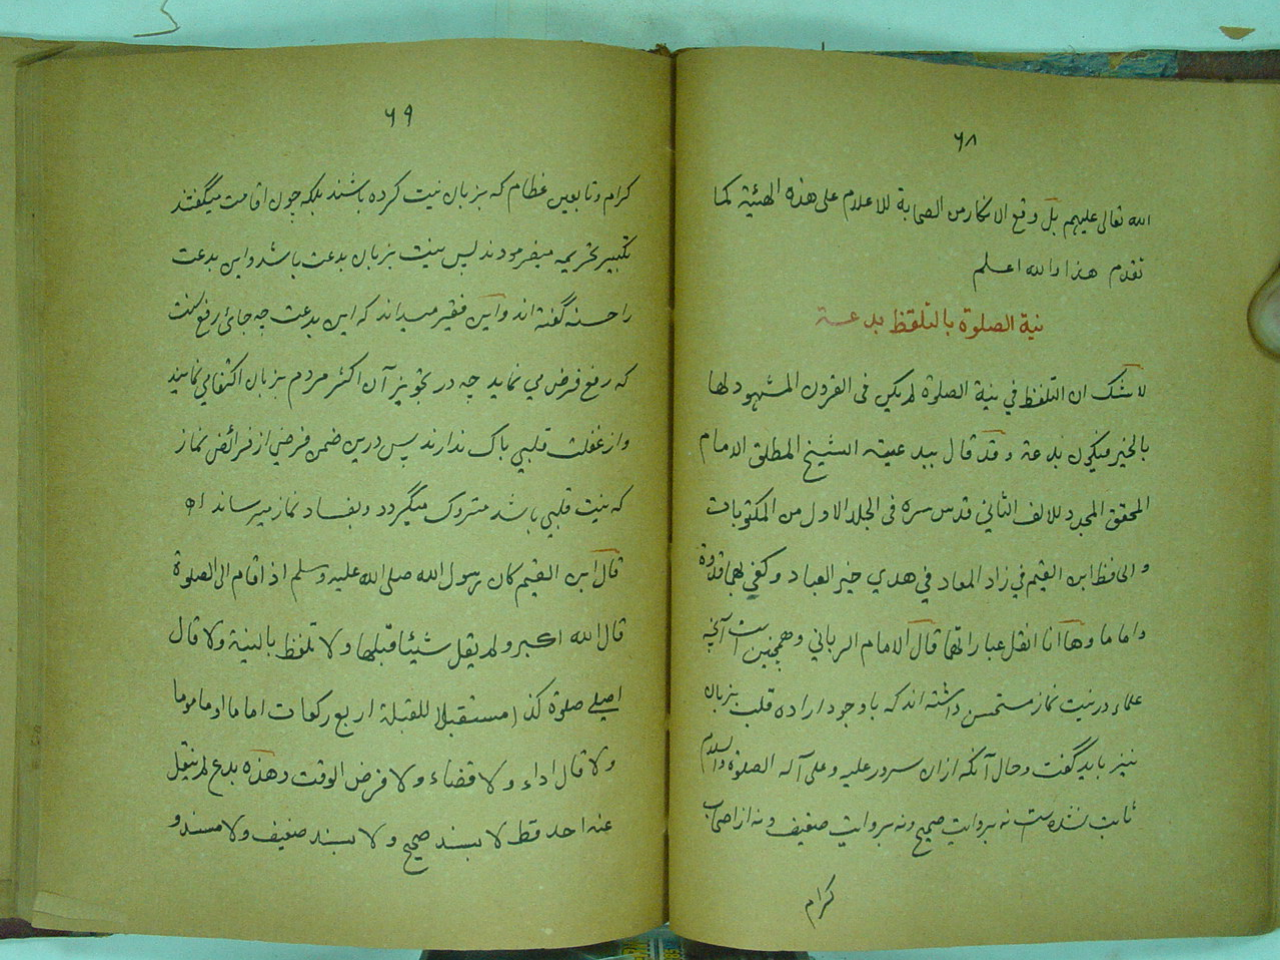 ۶۸
الله تعالى عليهم بل وقع الانكار من الصحابة للاعلام على هذه الهيئة كما
تقدم هذا والله اعلم
نية الصلوة بالتلفظ بدعة
لا شك ان التلفظ في نية الصلوة لم يكن فى القرون المشهود لها
بالخير فيكون بدعة وقد قال ببدعيته الشيخ المطلق الامام
المحقق المجدد للالف الثاني قدس سره فى الجلد الاول من المكتوبات
والحافظ ابن القيم في زاد المعاد في هدي خير العباد وكفى بهما قدوة
واماما وها انا انقل عباراتهما قال الامام الرباني وهمچنين است آنچه
علماء در نيت نماز مستحسن داشته اند كه باوجود اراده قلب بزبان
نيز بايد گفت وحال آنكه ازان سرور عليه وعلى آله الصلوة والسلام
ثابت نشده است نه بروايت صحيح ونه بروايت ضعيف ونه از اصحاب
كرام
۶۹
كرام وتابعين عظام كه بزبان نيت كرده باشند بلكه چون اقامت ميگفتند
تكبير تحريمه ميفرمودند پس نيت بزبان بدعت باشد واين بدعت
را حسنه گفته اند واين فقير ميداند كه اين بدعت چه جائ رفع سنت
كه رفع فرض مي نمايد چه در تجويز آن اكثر مردم بزبان اكتفا مي نمايند
واز غفلت قلبي باك ندارند پس درين ضمن فرضي از فرائض نماز
كه نيت قلبي باشد متروك ميگردد وبفساد نماز ميرساند اه
قال ابن القيم كان رسول الله صلى الله عليه وسلم اذا قام الى الصلوة
قال الله اكبر ولم يقل شيئا قبلها ولا تلفظ بالنية ولا قال
اصلي صلوة كذا مستقبلا للقبلة اربع ركعات اماما او ماموما
ولا قال اداء ولا قضاء ولا فرض الوقت وهذه بدع لم ينقل
عنه احد قط لا بسند صحيح ولا بسند ضعيف ولا مسند و